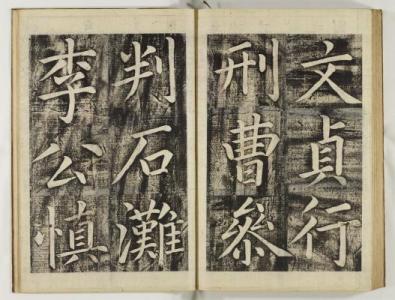 文貞行
刑曹叅
判石灘
李公慎